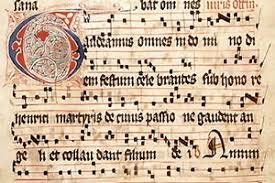 sana bat om nes
Gaudeamus omnes in do mi no di
em festum cele brantes sub hono re
henrici martyris de cuius passio ne gaudent an
ge li et collau dant filium de i